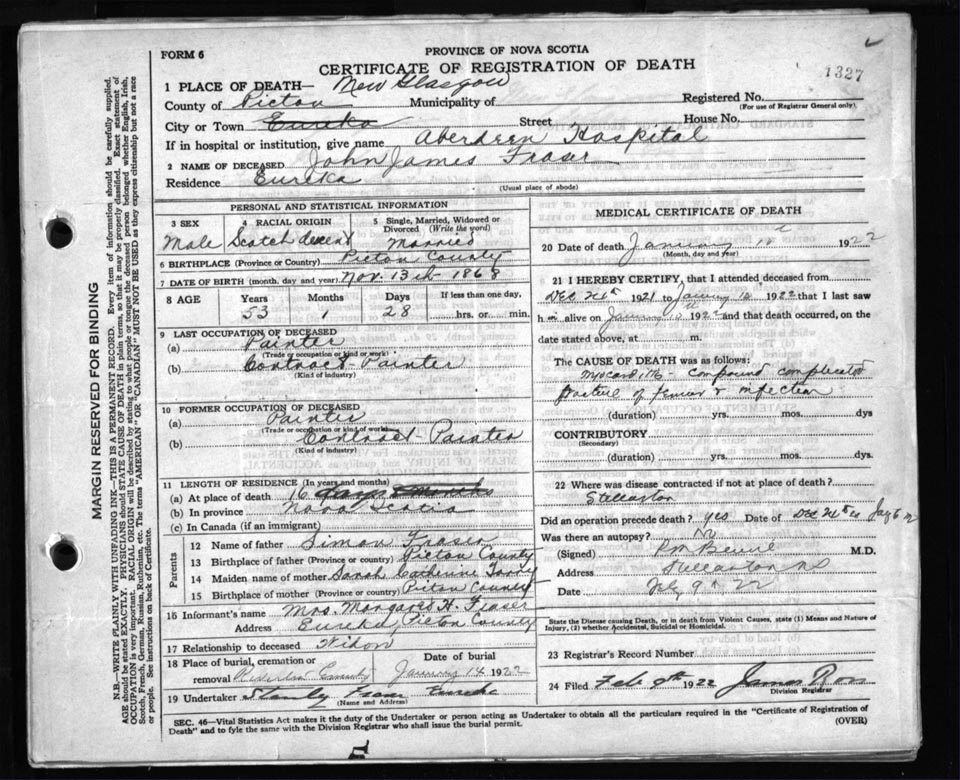 FORM 6
PROVINCE OF NOVA SCOTIA
CERTIFICATE OF REGISTRATION OF DEATH
1327
1 PLACE OF DEATH— New Glasgow
County of Picton Municipality of Registered No.
(For use of Registrar General only)
City or Town Eureka Street House No.
If in hospital or institution, give name Aberdeen Hospital
2 NAME OF DECEASED John James Fraser
Residence Eureka
(Usual place of abode)
PERSONAL AND STATISTICAL INFORMATION
3 SEX 4 RACIAL ORIGIN 5 Single, Married, Widowed or Divorced (Write the word)
Male Scotch descent Married
6 BIRTHPLACE (Province or Country) Picton County
7 DATE OF BIRTH (month, day and year) Nov. 13th 1868
8 AGE Years Months Days If less than one day,
53 1 28 hrs. or min.
9 LAST OCCUPATION OF DECEASED
(a) Painter
(Trade or occupation or kind or work)
(b) Contract Painter
(Kind of industry)
10 FORMER OCCUPATION OF DECEASED
(a) Painter
(Trade or occupation or kind of work)
(b) Contract Painter
(Kind of industry)
11 LENGTH OF RESIDENCE (In years and months)
(a) At place of death 16 days
(b) In province Nova Scotia
(c) In Canada (if an immigrant)
Parents
12 Name of father Simon Fraser
13 Birthplace of father (Province or country) Picton County
14 Maiden name of mother Sarah Catherine
15 Birthplace of mother (Province or country) Picton County
16 Informant's name Mrs. Margaret H. Fraser
Address Eureka, Picton County
17 Relationship to deceased Widow
18 Place of burial, cremation or Date of burial
removal January 14 1922
19 Undertaker Stanly Fraser Eureka
(Name and Address)
MEDICAL CERTIFICATE OF DEATH
20 Date of death January 10 1922
(Month, day and year)
21 I HEREBY CERTIFY, that I attended deceased from
Dec 24th 1921 to January 10 1922 that I last saw
h im alive on January 10 1922 and that death occurred, on the
date stated above, at m.
The CAUSE OF DEATH was as follows:
Myocarditis - compound complicated
fracture of femur & infection
(duration) yrs. mos. dys
CONTRIBUTORY
(Secondary)
(duration) yrs. mos. dys.
22 Where was disease contracted if not at place of death?
Stellarton
Did an operation precede death? yes Date of Dec 24th
Was there an autopsy? No
(Signed) M.D.
Address Stellarton NS
Date Feb 9th 22
State the Disease causing Death, or in death from Violent Causes, state (1) Means and Nature of Injury, (2) whether Accidental, Suicidal or Homicidal.
23 Registrar's Record Number
24 Filed Feb 9th 1922 James Ross
Division Registrar
SEC. 46—Vital Statistics Act makes it the duty of the Undertaker or person acting as Undertaker to obtain all the particulars required in the "Certificate of Registration of
Death" and to fyle the same with the Division Registrar who shall issue the burial permit. (OVER)
MARGIN RESERVED FOR BINDING
N.B.—WRITE PLAINLY WITH UNFADING INK—THIS IS A PERMANENT RECORD. Every item of information should be carefully supplied.
AGE should be stated EXACTLY. PHYSICIANS should STATE CAUSE OF DEATH in plain terms, so that it may be properly classified. Exact statement of
OCCUPATION is very important. RACIAL ORIGIN will be described by stating to what people or tongue the deceased person belonged whether English, Irish,
Scotch, French, German, Russian, Ruthenian, etc. The terms "AMERICAN" OR "CANADIAN" MUST NOT BE USED as they express citizenship but not a race
or people. See instructions on back of Certificate.